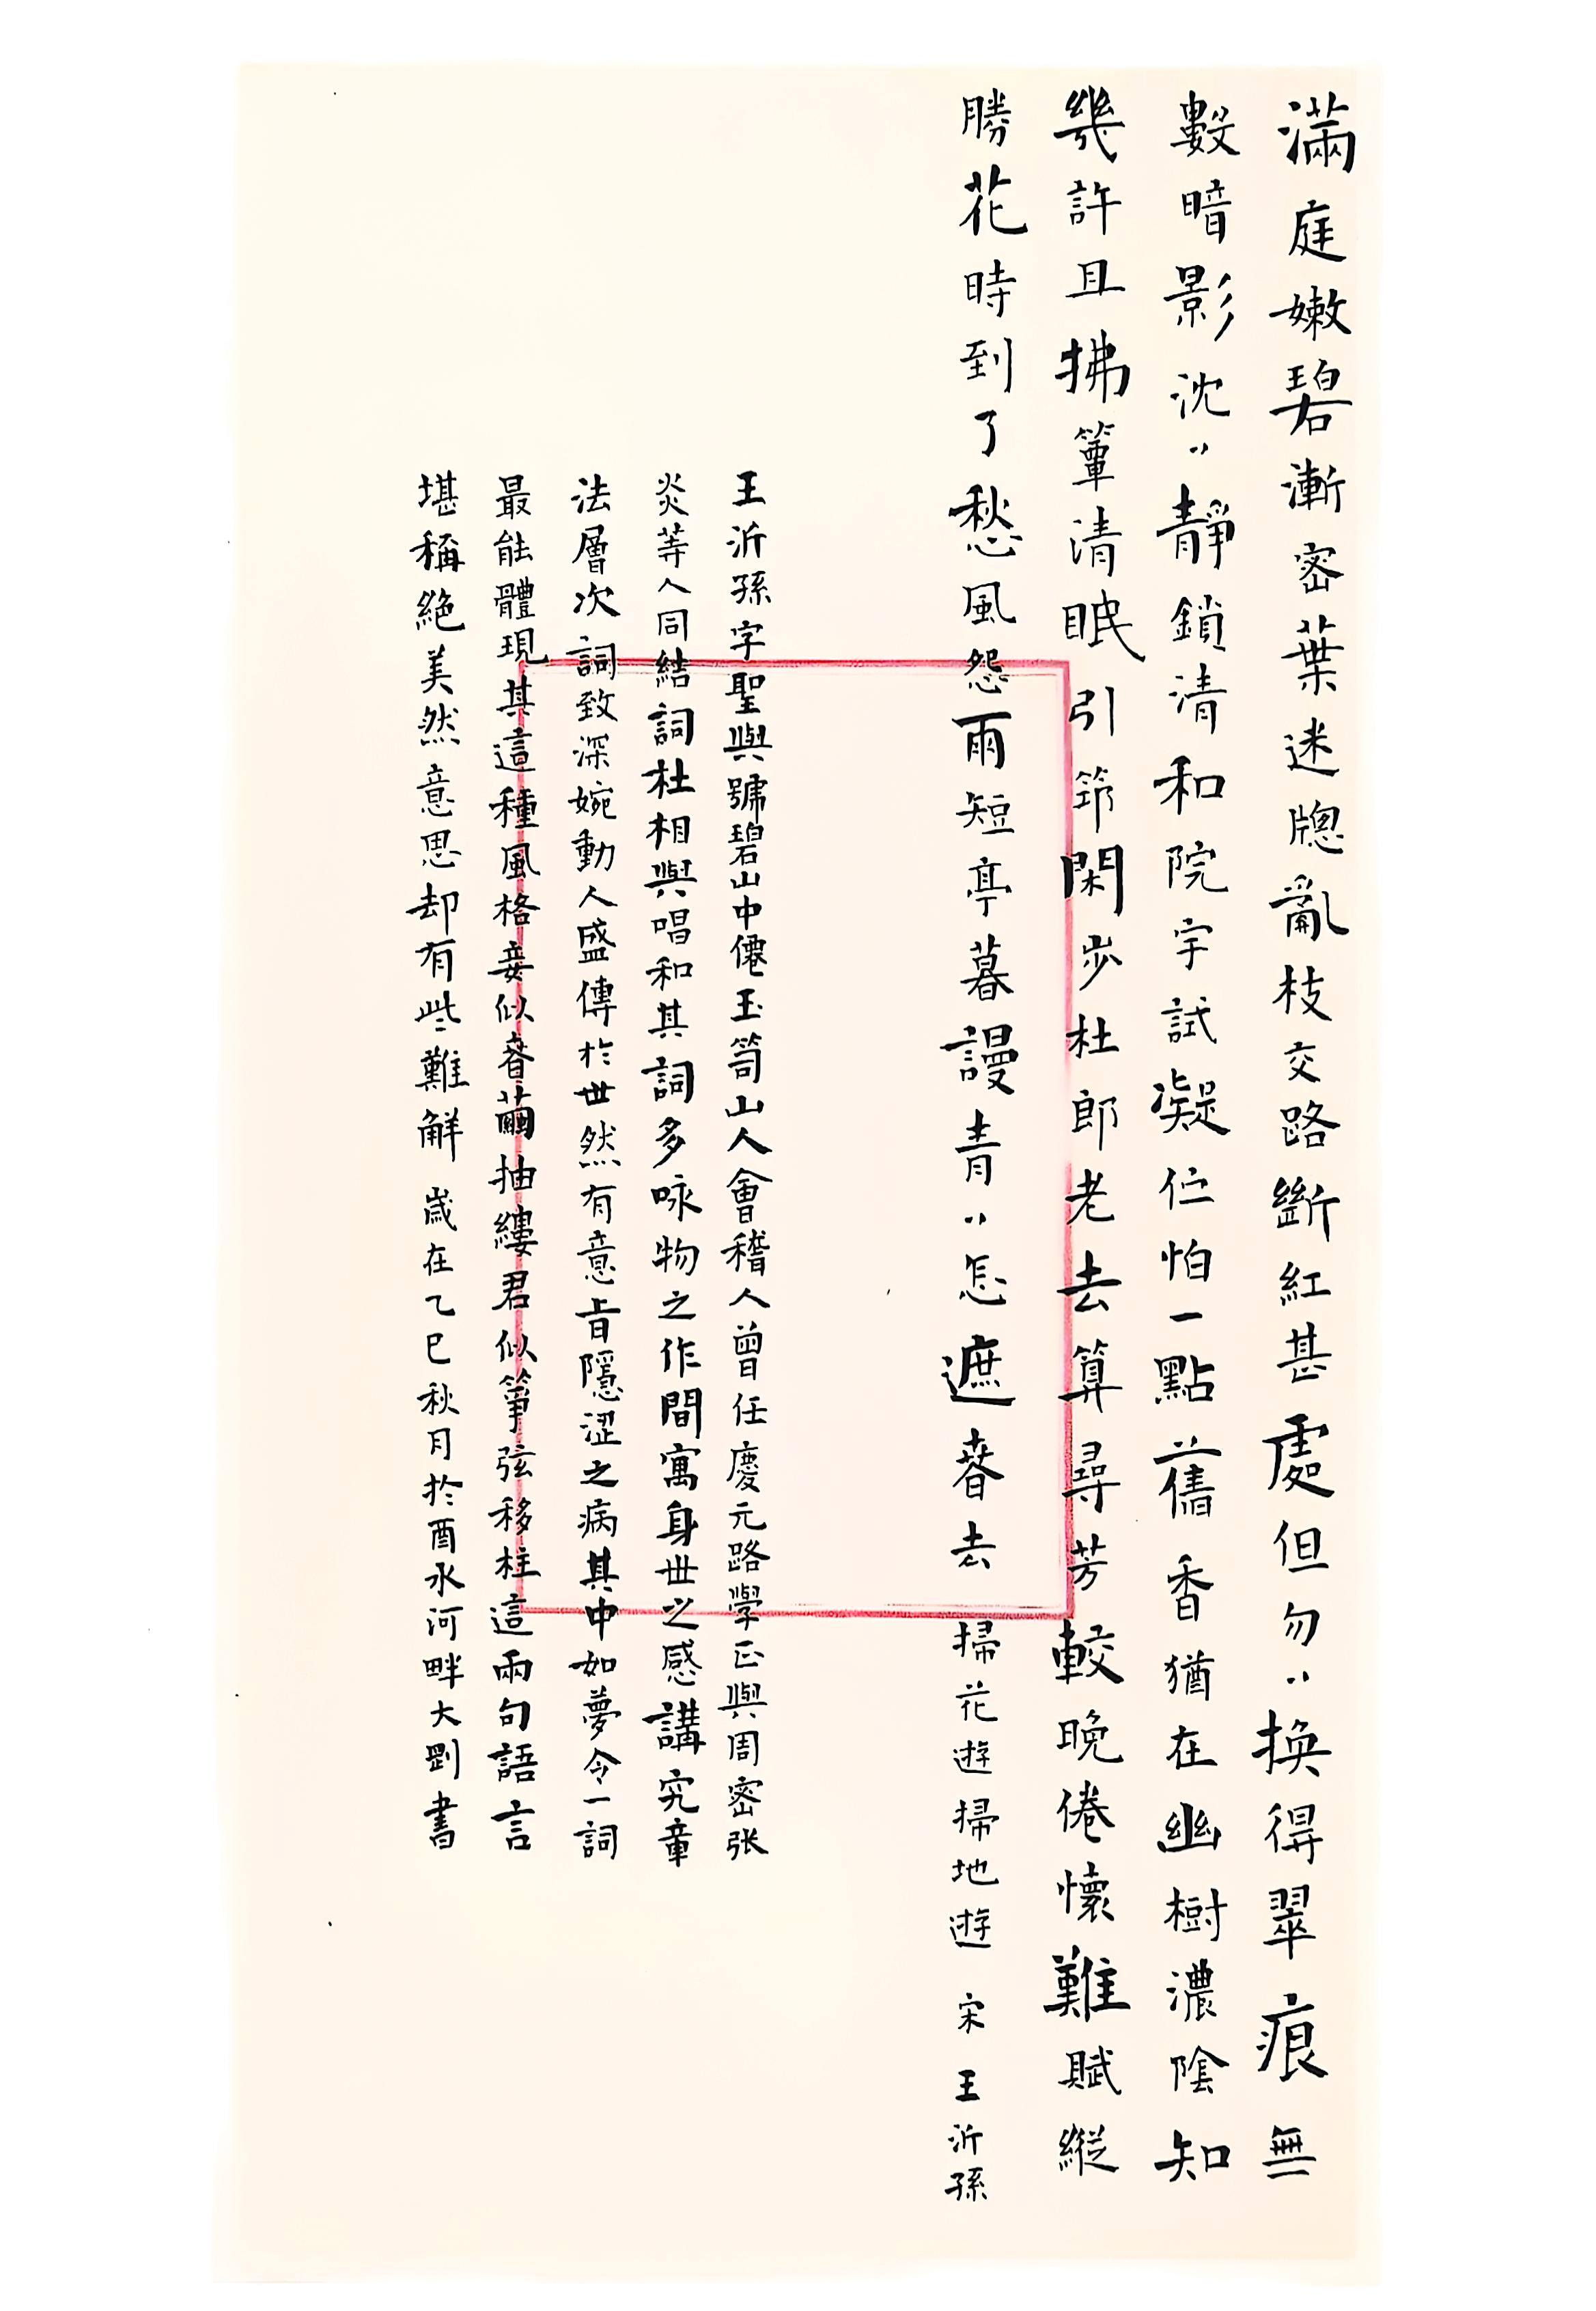 滿庭嫩碧漸密葉迷牕亂枝交路斷紅甚處但匆〻換得翠痕無
數暗影沈〻靜鎖清和院宇試凝佇怕一點舊香猶在幽樹濃陰知
幾許且拂簟清眠引筇閑步杜郎老去算尋芳較晚倦懷難賦縱
勝花時到了愁風怨雨短亭暮謾青〻怎遮春去掃花遊掃地遊宋王沂孫
王沂孫字聖與號碧山中僊玉笥山人會稽人曾任慶元路學正與周密张
炎等人同結詞杜相與唱和其詞多咏物之作間寓身世之感講究章
法層次詞致深婉動人盛傳於世然有意旨隱涩之病其中如夢令一詞
最能體現其這種風格妾似春繭抽縷君似箏弦移柱這兩句語言
堪稱絕美然意思却有些難解歲在乙巳秋月於酉水河畔大剛書